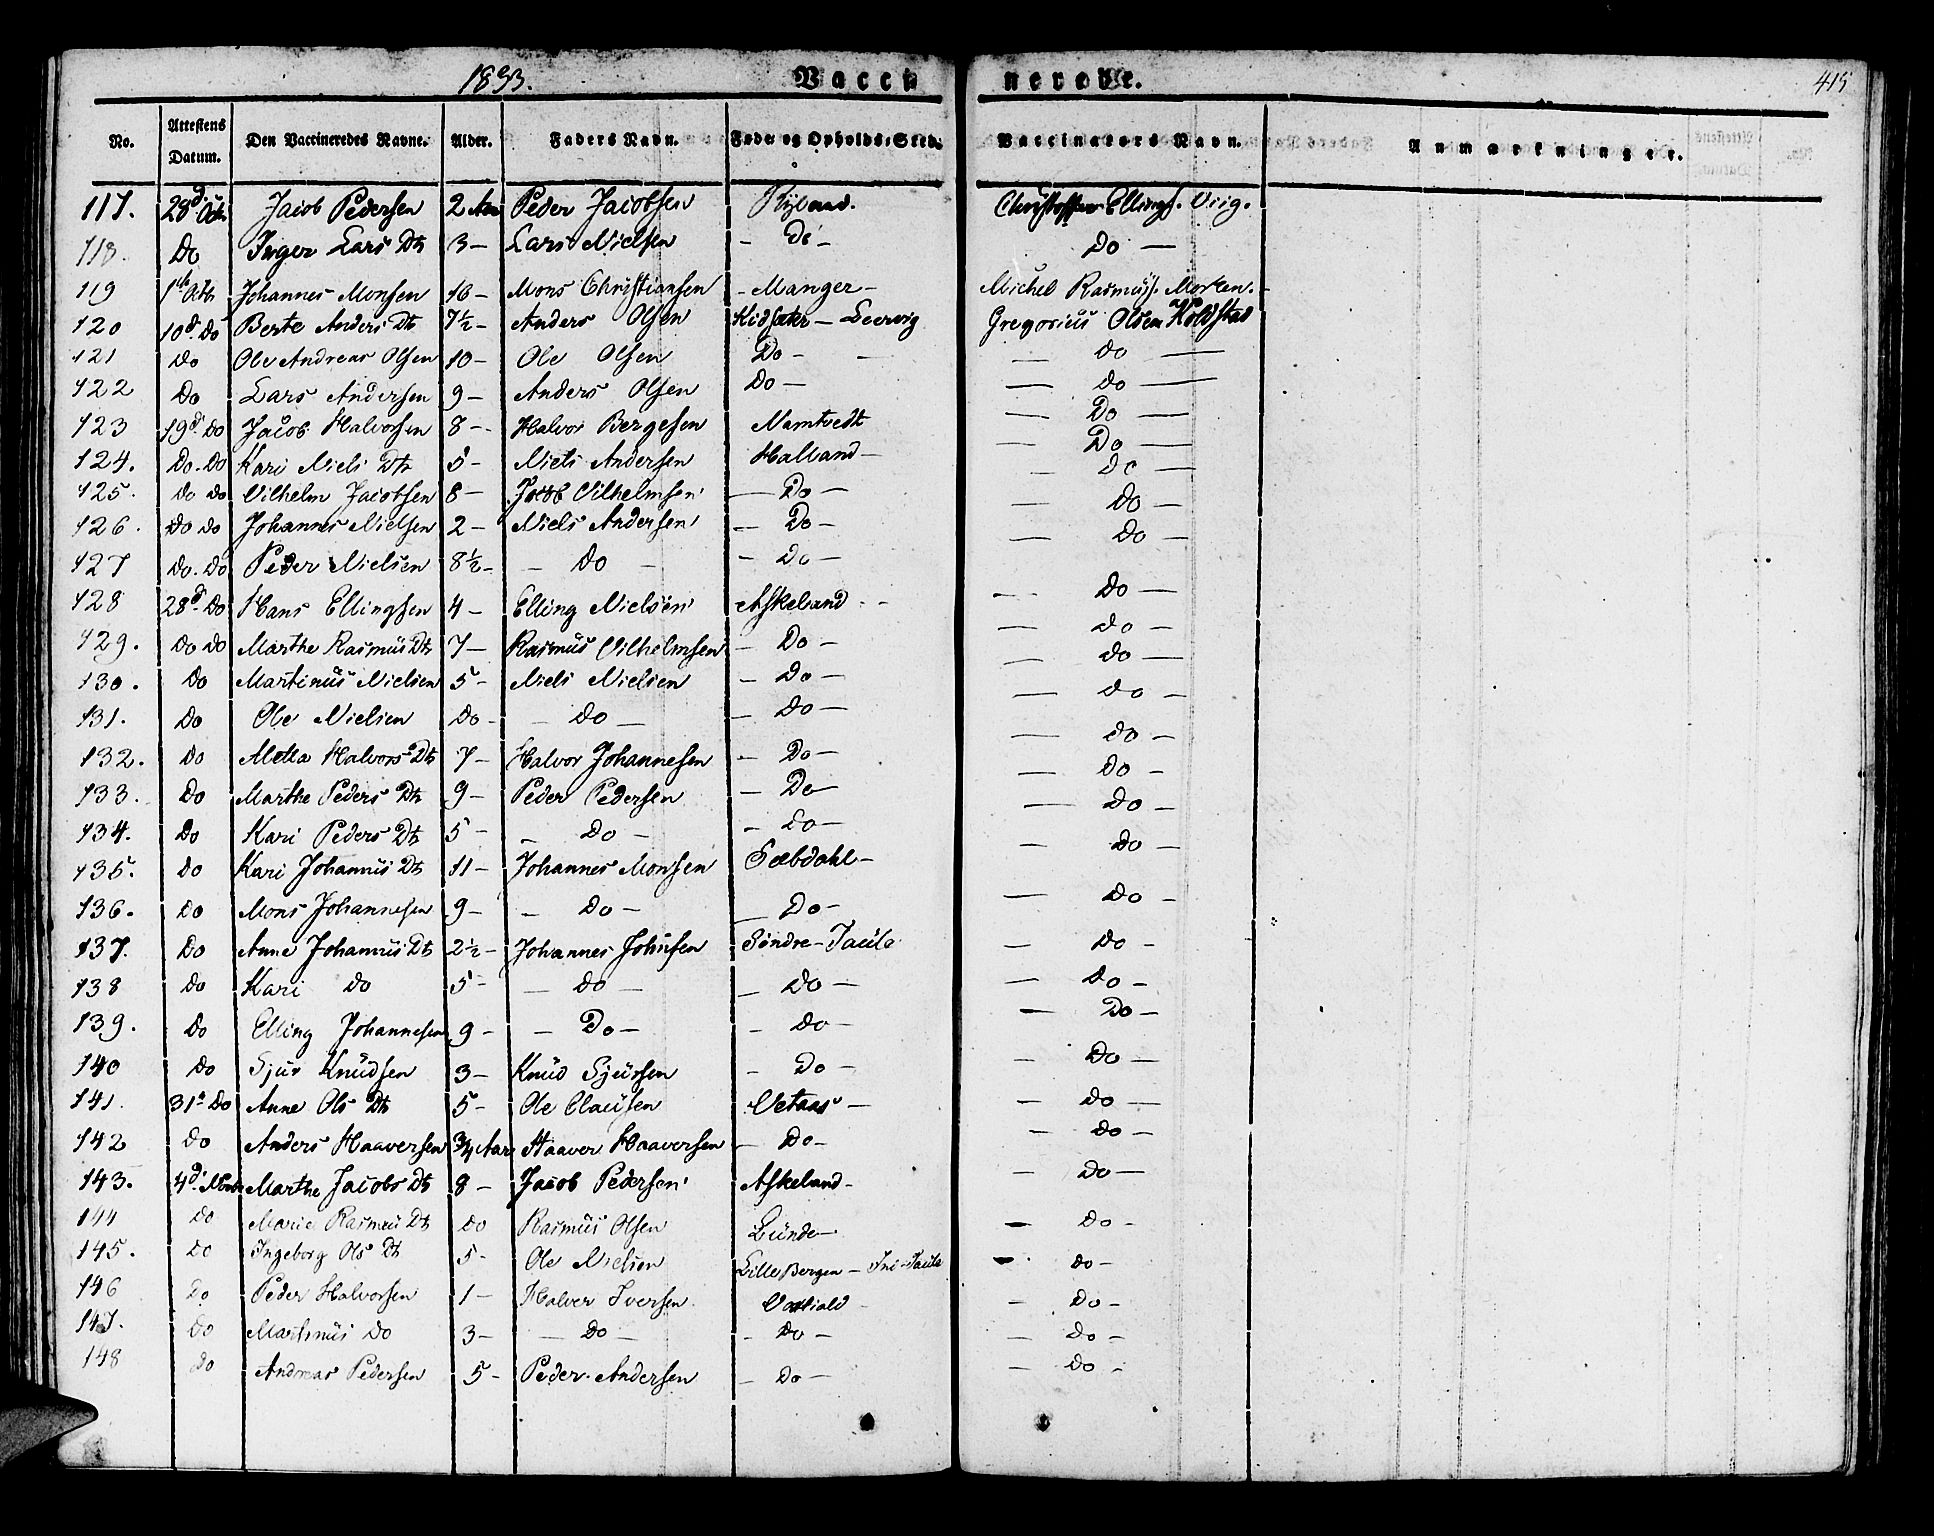 1833. Vaccinerede. 415
No. | Attestens Datum. | Den Vaccineredes Navne. | Alder. | Faders Navn. | Føde og Opholds-Sted. | Vaccinators Navn. | Anmærkninger.
117. | 28d Octr | Jacob Pedersen | 2 Aar | Peder Jacobsen | Ryland. | Christoffer Ellings. Vrig.
118. | Do | Inger Lars Dtr | 3 – | Lars Nielsen | – Do – | Do –
119 | 1ste Octb | Johannes Monsen | 16 – | Mons Christiansen | – Manger – | Michel Rasmüs. Morken. –
120 | 10d. Do | Berte Anders Dtr | 7½ – | Anders Olsen | Kidsæter – Leervig | Gregorius Olsen Koldstad
121 | Do | Ole Andreas Olsen | 10 – | Ole Olsen | Do – – | – Do –
122 | Do | Lars Andersen | 9 – | Anders Olsen | Do – | – Do –
123 | 19d. Do | Jacob Halvorsen | 8 – | Halvor Bergesen | Namtvedt | – Do –
124. | Do. Do | Kari Niels Dtr | 5 – | Niels Andersen | Halland – | – Do –
125. | Do Do | Vilhelm Jacobsen | 8 – | Jacob Vilhelmsen | – Do – | – Do –
126. | Do Do | Johannes Nielsen | 2 – | Niels Andersen | – Do – | – Do –
127 | Do. Do | Peder Nielsen | 8½ – | – Do – | – Do – | – Do –
128 | 28d. Do | Hans Ellingsen | 4 – | Elling Nielsen | Askeland – | – Do –
129. | Do Do | Marthe Rasmüs Dtr | 7 – | Rasmüs Vilhelmsen | – Do – | – Do –
130. | Do | Martinüs Nielsen | 5 – | Niels Nielsen | – Do – | – Do –
131. | Do | Ole Nielsen | Do – | – Do – | – Do – | – Do –
132. | Do | Metta Halvors Dtr | 7 – | Halvor Johannesen | – Do – | – Do –
133. | Do | Marthe Peders Dtr | 9 – | Peder Pedersen | – Do – | – Do –
134. | Do | Kari Peders Dtr | 5 – | – Do – | – Do – | – Do –
135. | Do | Kari Johannis Dtr | 11 – | Johannes Monsen | Sæbdahl – | – Do –
136. | Do | Mons Johannesen | 9 – | – Do – | – Do – | – Do –
137. | Do | Anne Johannis Dtr | 2½ – | Johannes Johnsen | Søndre – Taule | – Do –
138 | Do | Kari Do | 5 – | – Do – | – Do – | – Do –
139. | Do | Elling Johannesen | 9 – | – Do – | – Do – | – Do –
140 | Do | Sjur Knüdsen | 3 – | Knüd Sjürsen | – Do – | – Do –
141. | 31e Do | Anne Ols Dtr | 5 – | Ole Claüsen | Vetaas – | – Do –
142 | Do | Anders Haaversen | ¾ Aar | Haaver Haaversen | – Do – | – Do –
143. | 4d. Novb | Marthe Jacobs Dtr | 8 – | Jacob Pedersen | Askeland – | – Do –
144 | Do | Marie Rasmüs Dtr | Do | Rasmüs Olsen | Lünde – | – Do –
145. | Do | Ingeborg Ols Dt | 5 – | Ole Nielsen | Lille Bergen – Ini – Taule | – Do –
146 | Do | Peder Halvorsen | 1 – | Halver Iversen | – | – Do –
147. | Do | Martinüs Do | 3 – | – Do – | – Do – | – Do –
148 | Do | Andreas Pedersen | 5 – | Peder Andersen | – Do – | – Do –